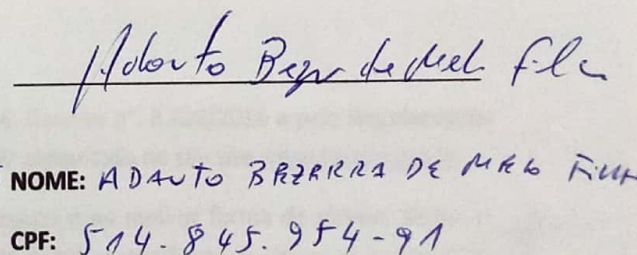 Adauto Bezerra de Melo Filho
NOME: ADAUTO BEZERRA DE MELO FILHO
CPF: 514.845.954-91